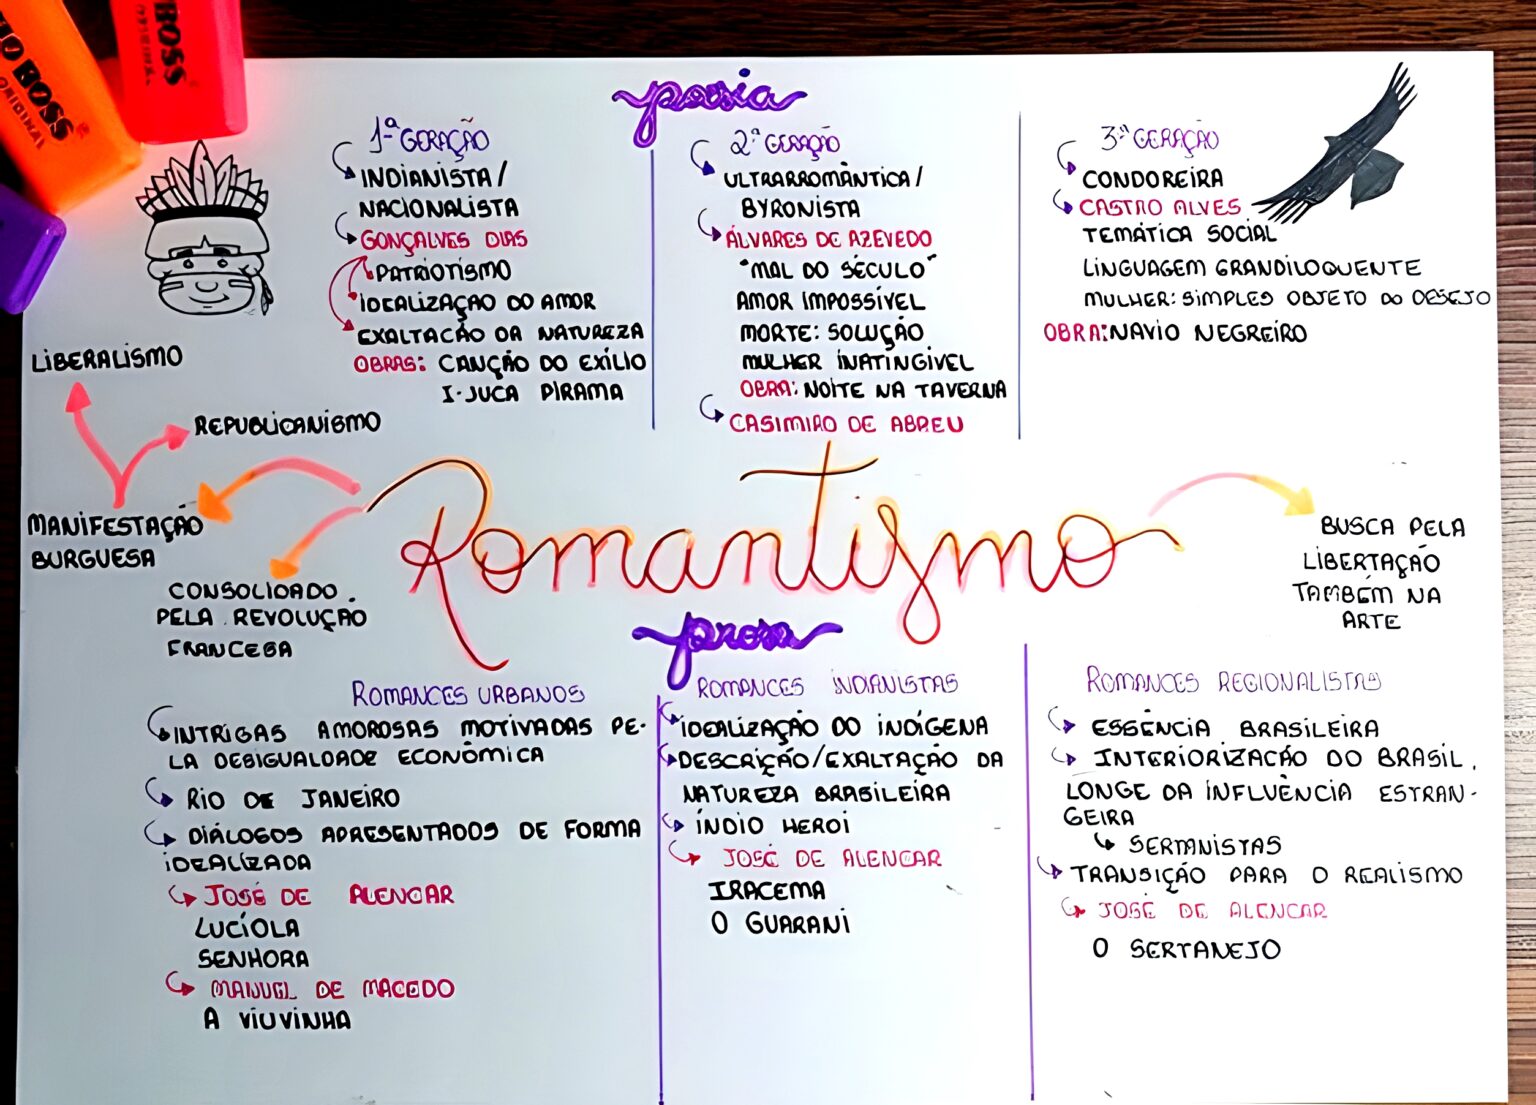 BOSS
ORIGINAL
BOSS
ORIGINAL
poesia
1ª GERAÇÃO
INDIANISTA/
NACIONALISTA
GONÇALVES DIAS
PATRIOTISMO
IDEALIZAÇÃO DO AMOR
EXALTACÃO DA NATUREZA
OBRAS: CANÇÃO DO EXÍLIO
I-JUCA PIRAMA
2ª GERAÇÃO
ULTRARROMÂNTICA/
BYRONISTA
ÁLVARES DE AZEVEDO
"MAL DO SÉCULO"
AMOR IMPOSSÍVEL
MORTE: SOLUÇÃO
MULHER INATINGÍVEL
OBRA: NOITE NA TAVERNA
CASIMIRO DE ABREU
3ª GERAÇÃO
CONDOREIRA
CASTRO ALVES
TEMÁTICA SOCIAL
LINGUAGEM GRANDILOQUENTE
MULHER: SIMPLES OBJETO DO DESEJO
OBRA: NAVIO NEGREIRO
LIBERALISMO
REPUBLICANISMO
MANIFESTAÇÃO
BURGUESA
CONSOLIDADO
PELA REVOLUÇÃO
FRANCESA
Romantismo
BUSCA PELA
LIBERTAÇÃO
TAMBÉM NA
ARTE
prosa
ROMANCES URBANOS
INTRIGAS AMOROSAS MOTIVADAS PE-
LA DESIGUALDADE ECONÔMICA
RIO DE JANEIRO
DIÁLOGOS APRESENTADOS DE FORMA
IDEALIZADA
JOSÉ DE ALENCAR
LUCÍOLA
SENHORA
MANUEL DE MACEDO
A VIUVINHA
ROMANCES INDIANISTAS
IDEALIZAÇÃO DO INDÍGENA
DESCRIÇÃO/EXALTAÇÃO DA
NATUREZA BRASILEIRA
ÍNDIO HEROI
JOSÉ DE ALENCAR
IRACEMA
O GUARANI
ROMANCES REGIONALISTAS
ESSÊNCIA BRASILEIRA
INTERIORIZACÃO DO BRASIL,
LONGE DA INFLUÊNCIA ESTRAN-
GEIRA
SERTANISTAS
TRANSIÇÃO PARA O REALISMO
JOSÉ DE ALENCAR
O SERTANEJO